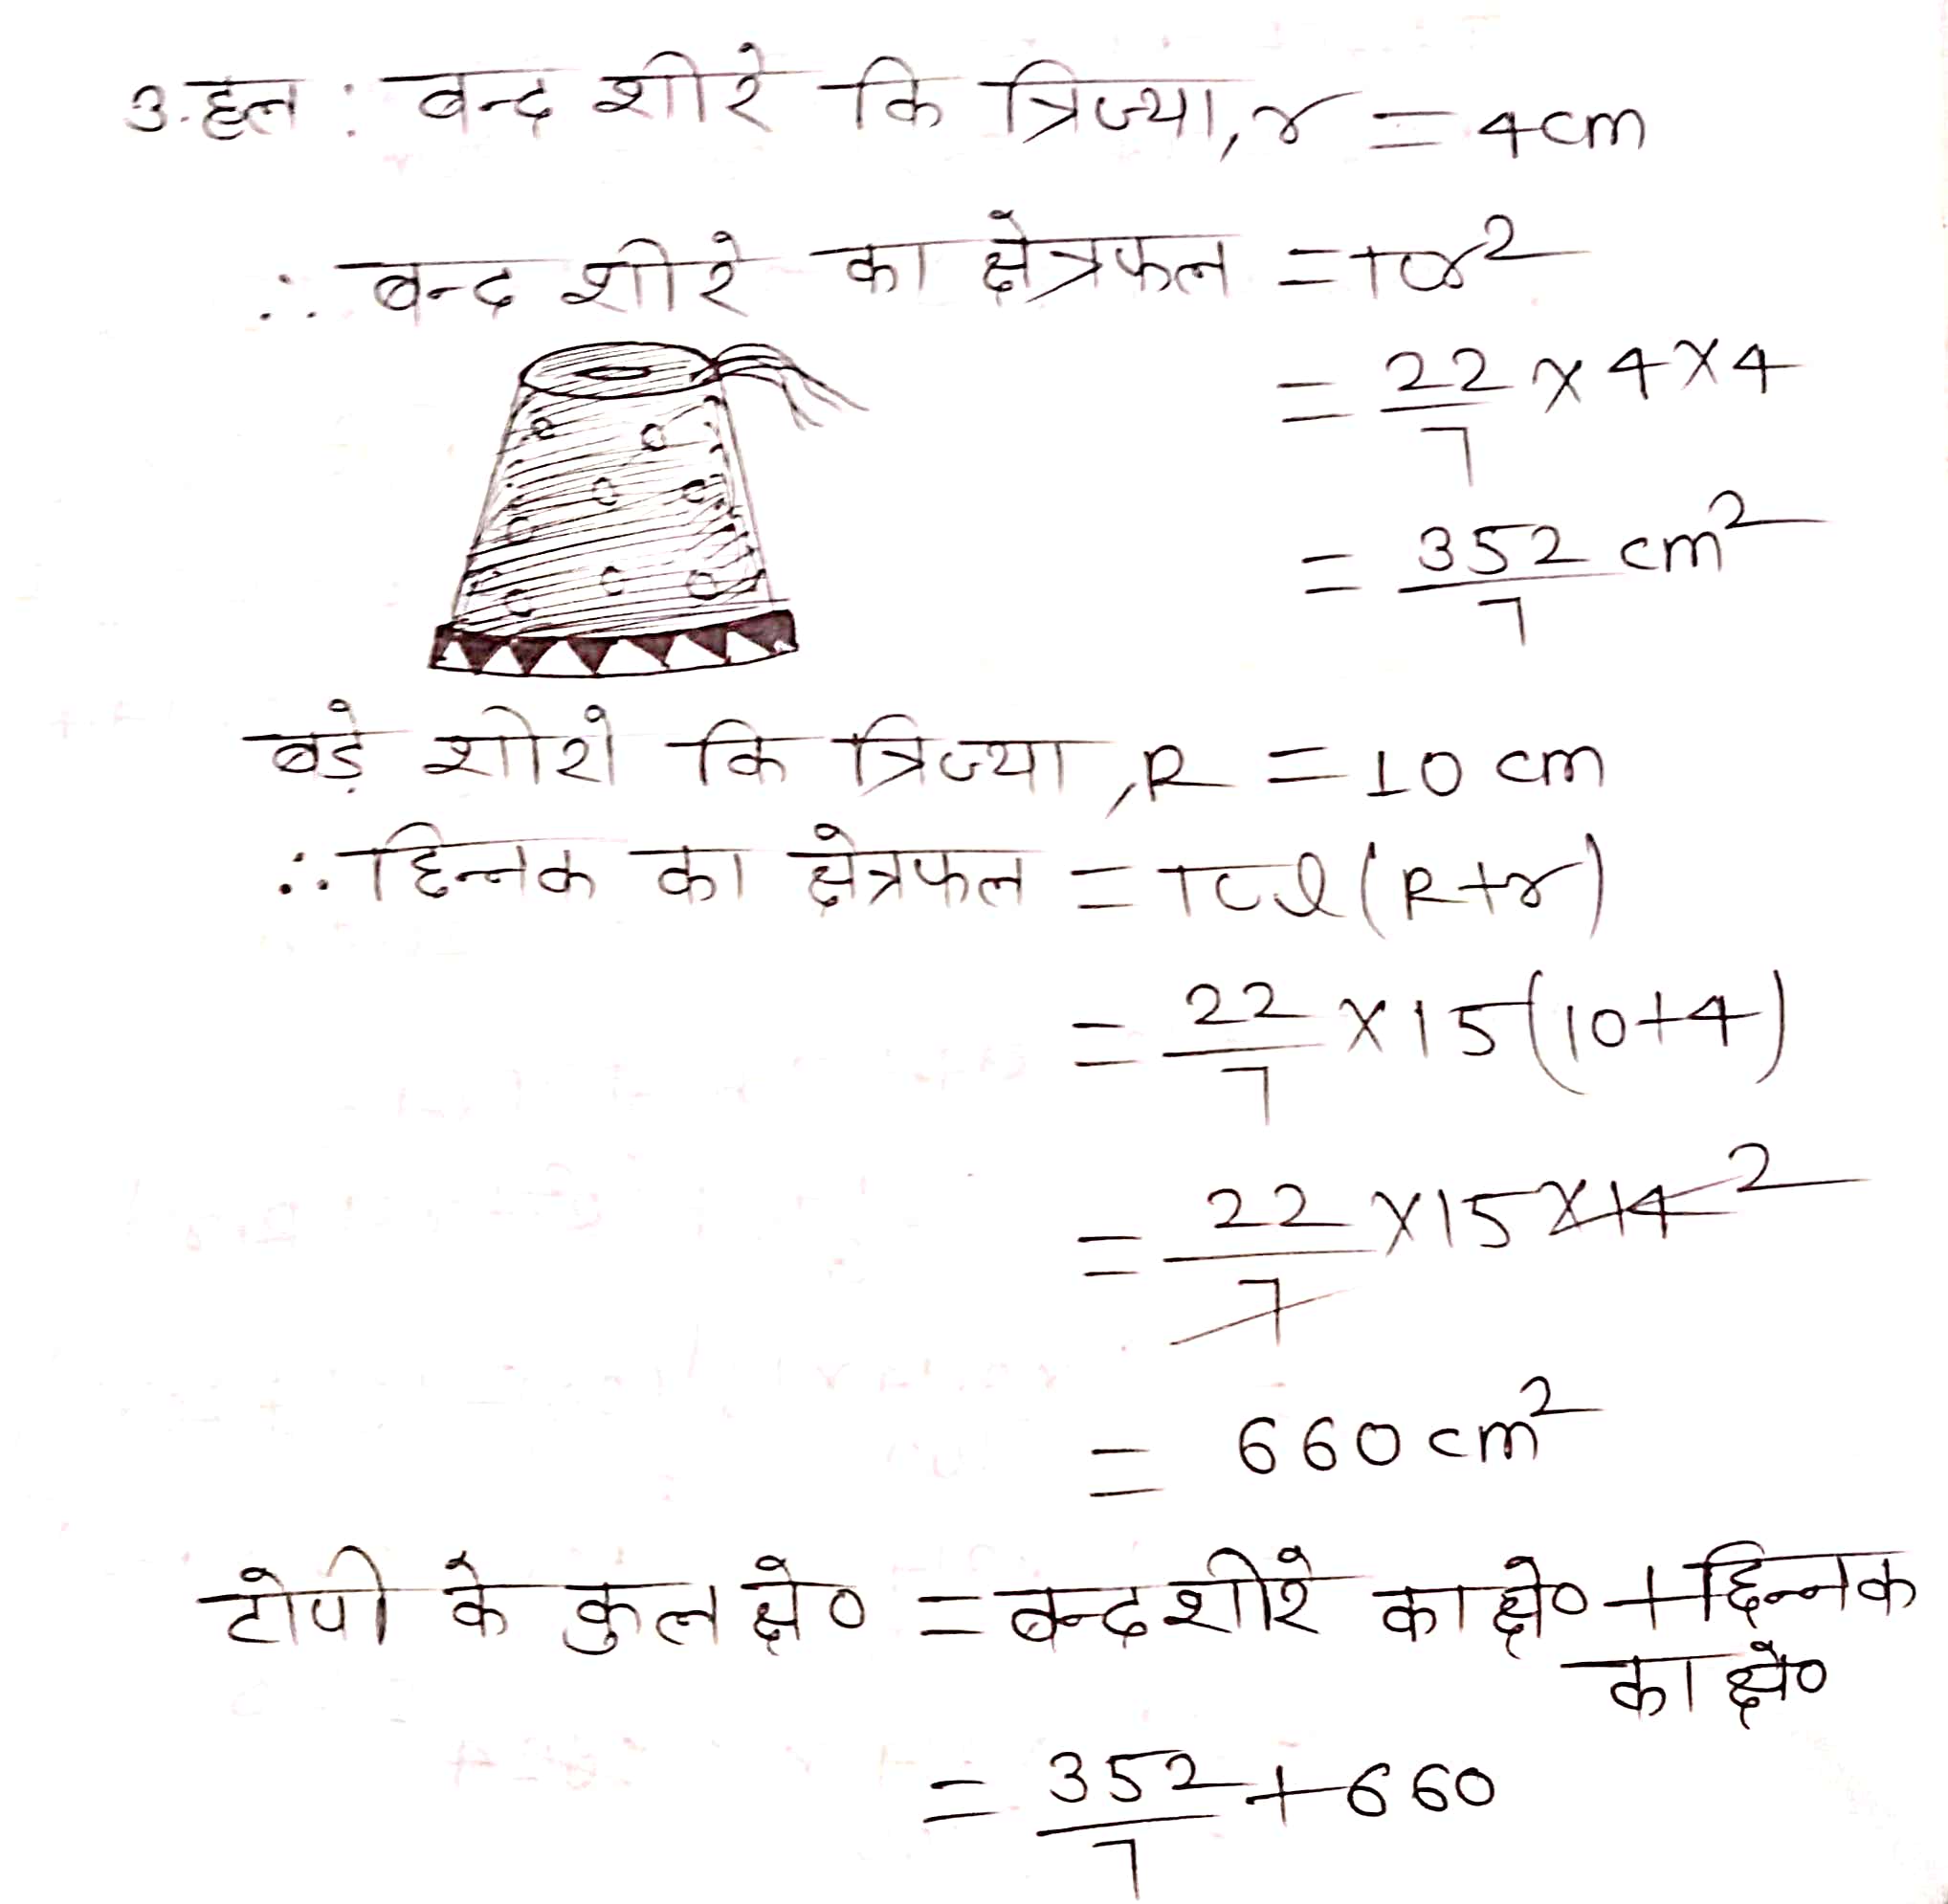 3. हल : बन्द शीरे कि त्रिज्या, r = 4cm
∴ बन्द शीरे का क्षेत्रफल = πr²
= 22/7 × 4 × 4
= 352/7 cm²
बड़े शीरो कि त्रिज्या, R = 10 cm
∴ छिन्नक का क्षेत्रफल = πl(R+r)
= 22/7 × 15(10+4)
= 22/7 × 15 × 14 2
= 660 cm²
टोपी के कुल क्षे० = बन्द शीरे का क्षे० + छिन्नक
का क्षे०
= 352/7 + 660